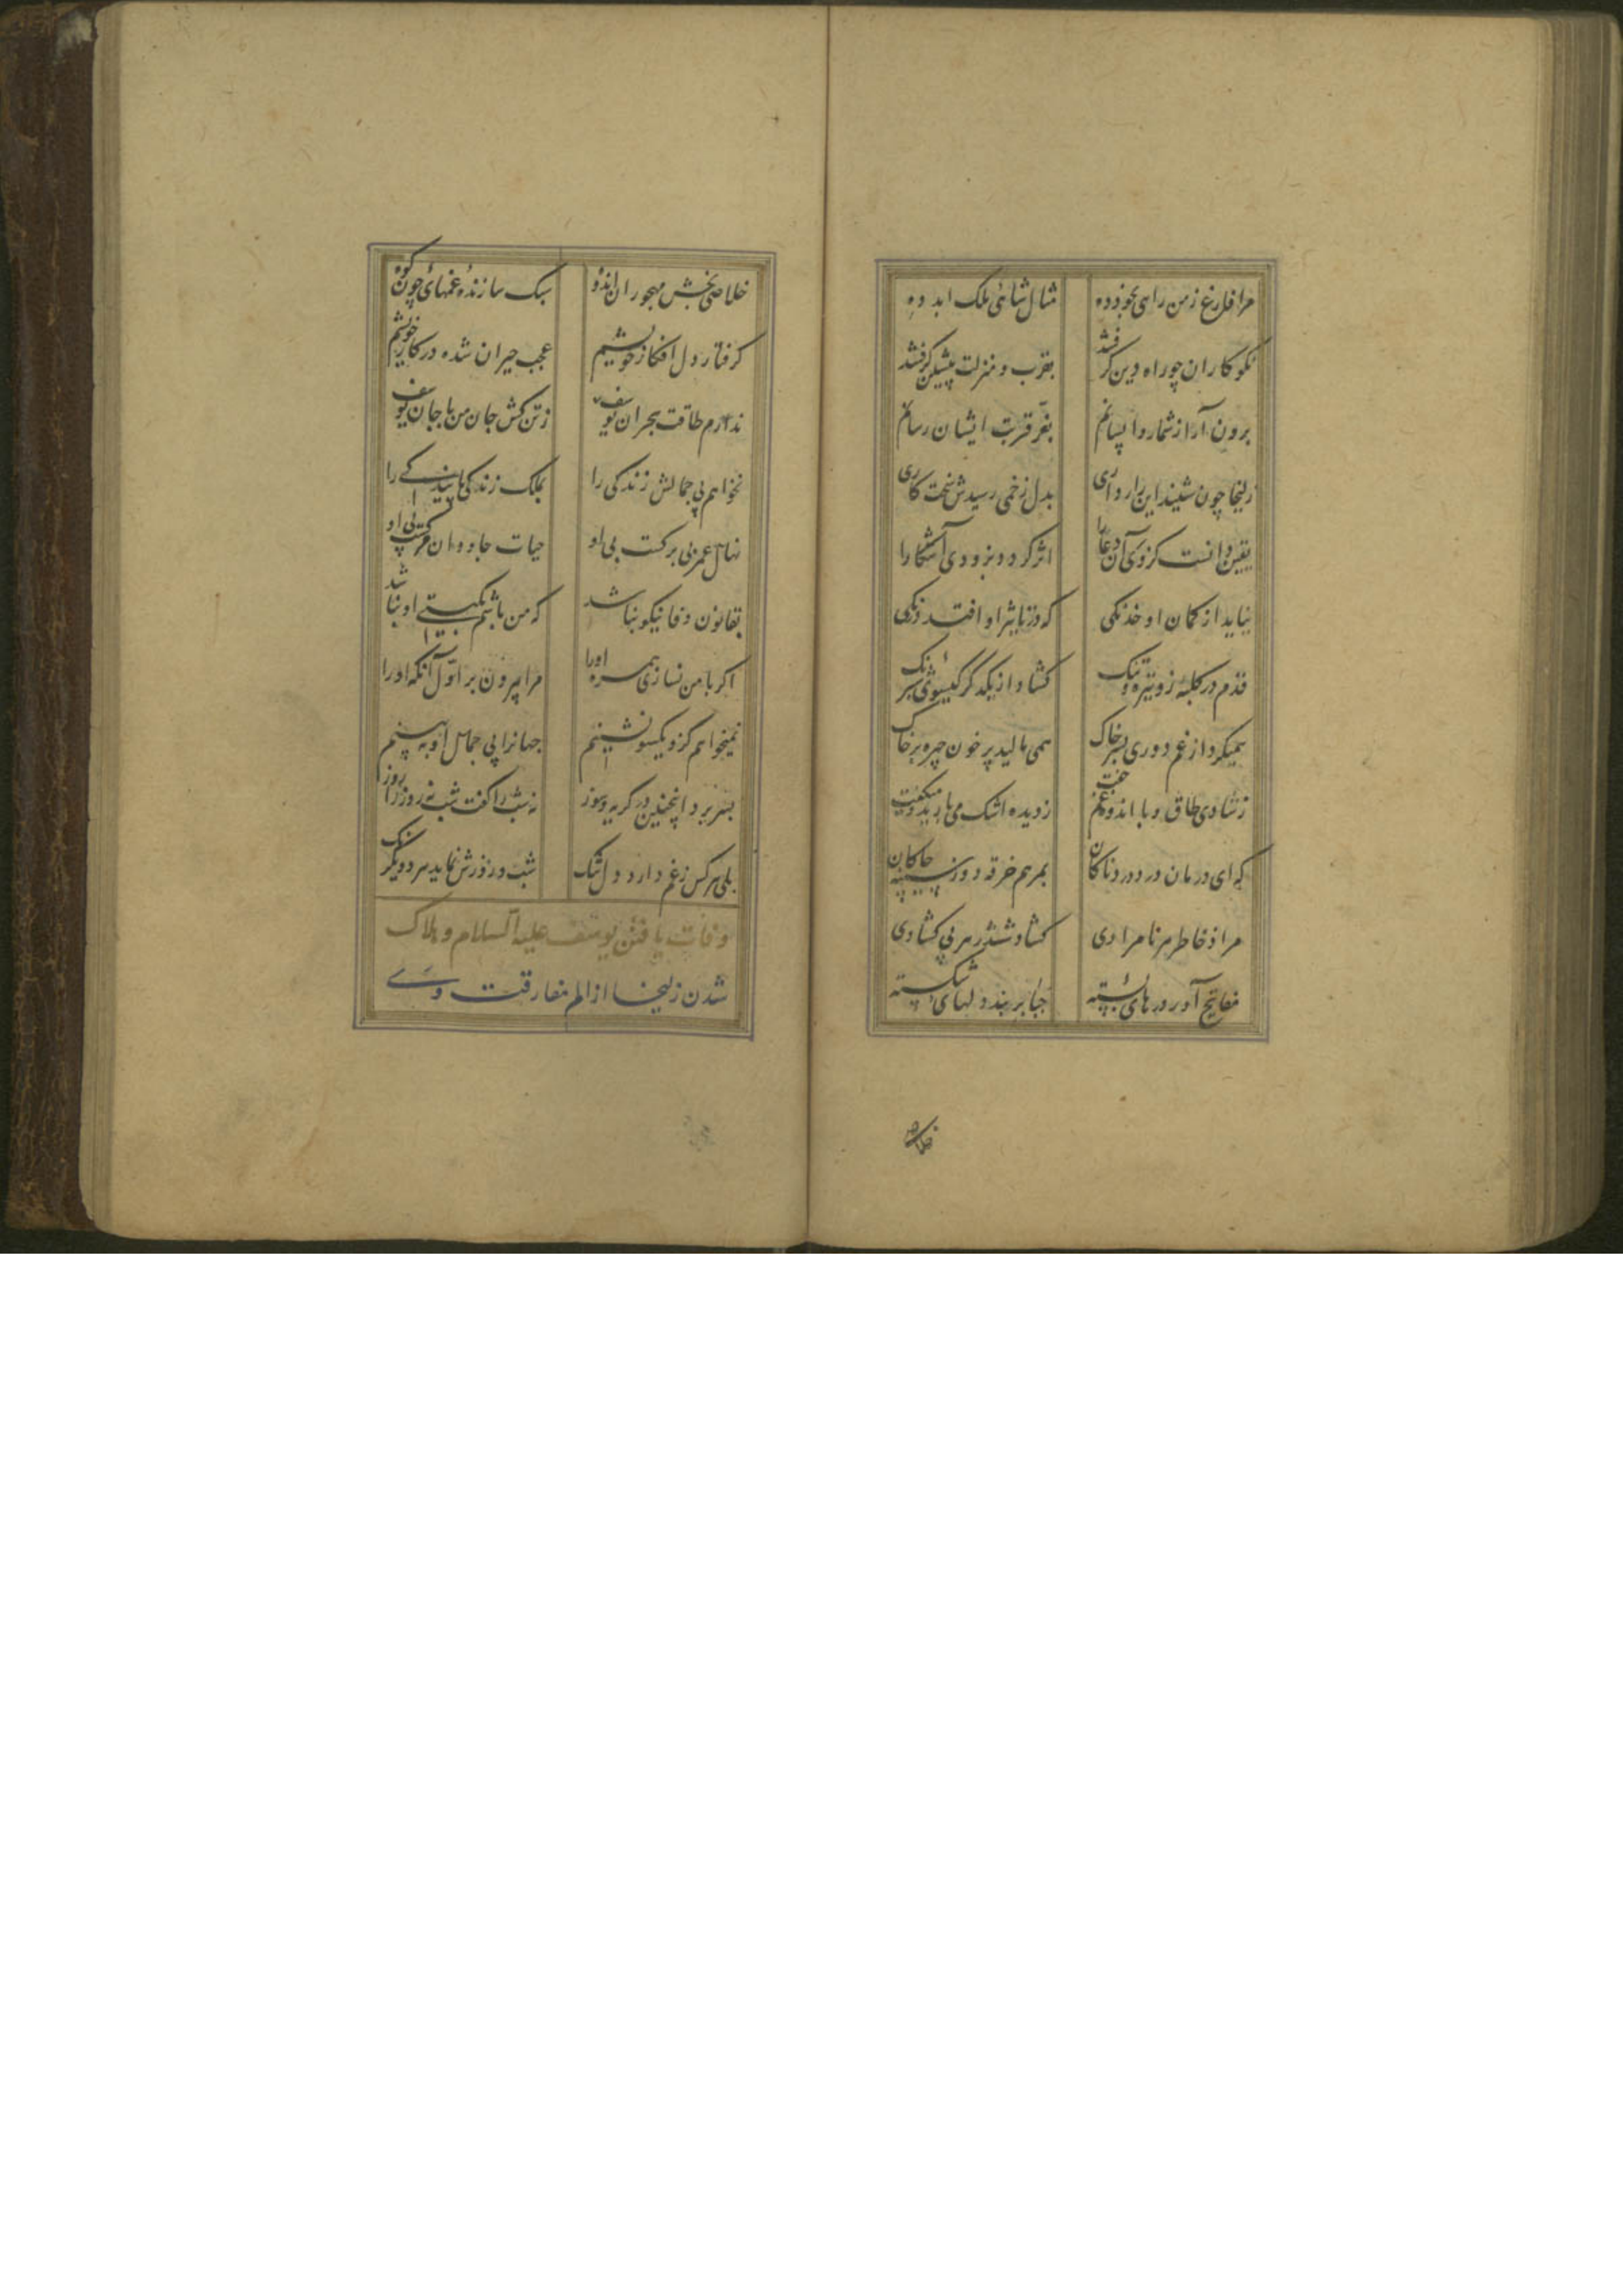 مرا فارغ ز من راهی بخود ده مثال شاهی ملک ابد ده
نکو کاران چو راه دین کرفتند بقرب و منزلت پیشین کرفتند
برون آر از شمار واپسانم بعز قربت ایشان رسانم
زلیخا چون شنید این رازداری بدل زخمی رسیدش سخت کاری
یقین دانست کز وی آن دعا را اثر کردد بزودی آشکارا
نیاید از کمان او خدنکی که در تاثیر او افتد درنکی
قدم در کلبهٔ زد تیره و تنک کشاد از یکدکر کیسوی شبرنک
همیکرد از غم دوری بسر خاک همی مالید پر خون چهره بر خاک
ز شادی طاق و با اندوه و غم جفت ز دیده اشک می بارید و میکفت
که ای درمان درد دردناکان بمرهم خرقه دوز سینه چاکان
مراد خاطر هر نامرادی کشاد ششدر هر بی کشادی
مفاتیح آور درهای بسته جبایر بند دلهای شکسته
خلاصی
خلاصی بخش مهجوران اندوه سبک سازندهٔ غمهای چون کوه
کرفتار دل افکار خویشم عجب حیران شده در کار خویشم
ندارم طاقت هجران یوسف ز تن کش جان من با جان یوسف
نخواهم بی جمالش زندکی را بملک زندکی پایندکی را
نهال عمر بی برکست بی او حیات جاودان مرکست بی او
بقانون وفا نیکو نباشد که من باشم بکیتی او نباشد
اکر با من نسازی همره او را مرا بیرون بر اول آنکه او را
نمیخواهم کزو یکسو نشینم جهانرا بی جمال او ببینم
بسر برد اینچنین در کریه و سوز نه شب را کفت شب نه روز را روز
بلی هر کس ز غم دارد دل تنک شب و روزش نماید هر دو یکرنک
وفات یافتن یوسف علیه السلام و هلاک
شدن زلیخا از الم مفارقت وی